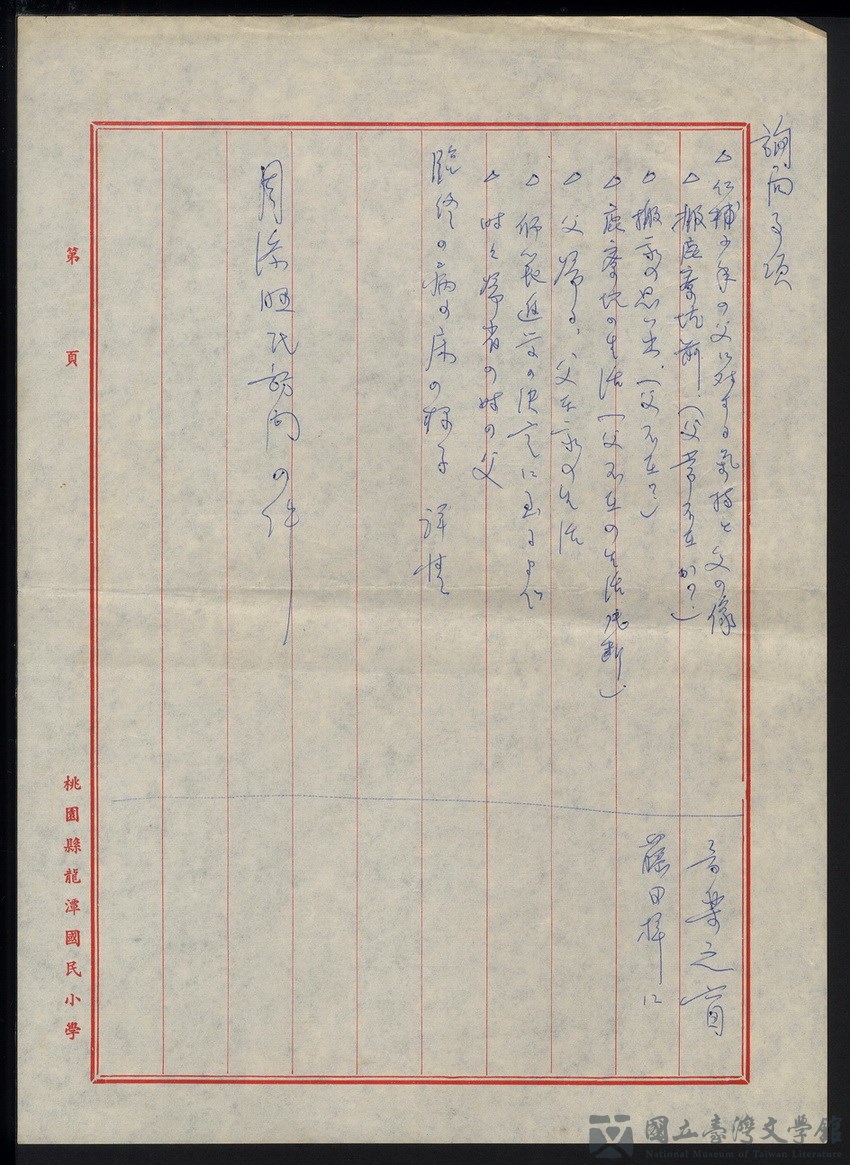 詢問事項
△仁輔少年の父に対する氣持と父の像
△搬鹿寮坑前、(父常不在かの?)
△搬家の思い出、(父不在?)
△鹿寮坑の生活(父不在の生活片断)
△父帰る、父在家の生活
△師範進学の決定に至る
△時々帰省の時の父
臨終の病の床の様子 詳情
周添旺氏訪問の件
音楽之
藤田様に
第 頁
桃園縣龍潭國民小學
國立臺灣文學館
National Museum of Taiwan Literature